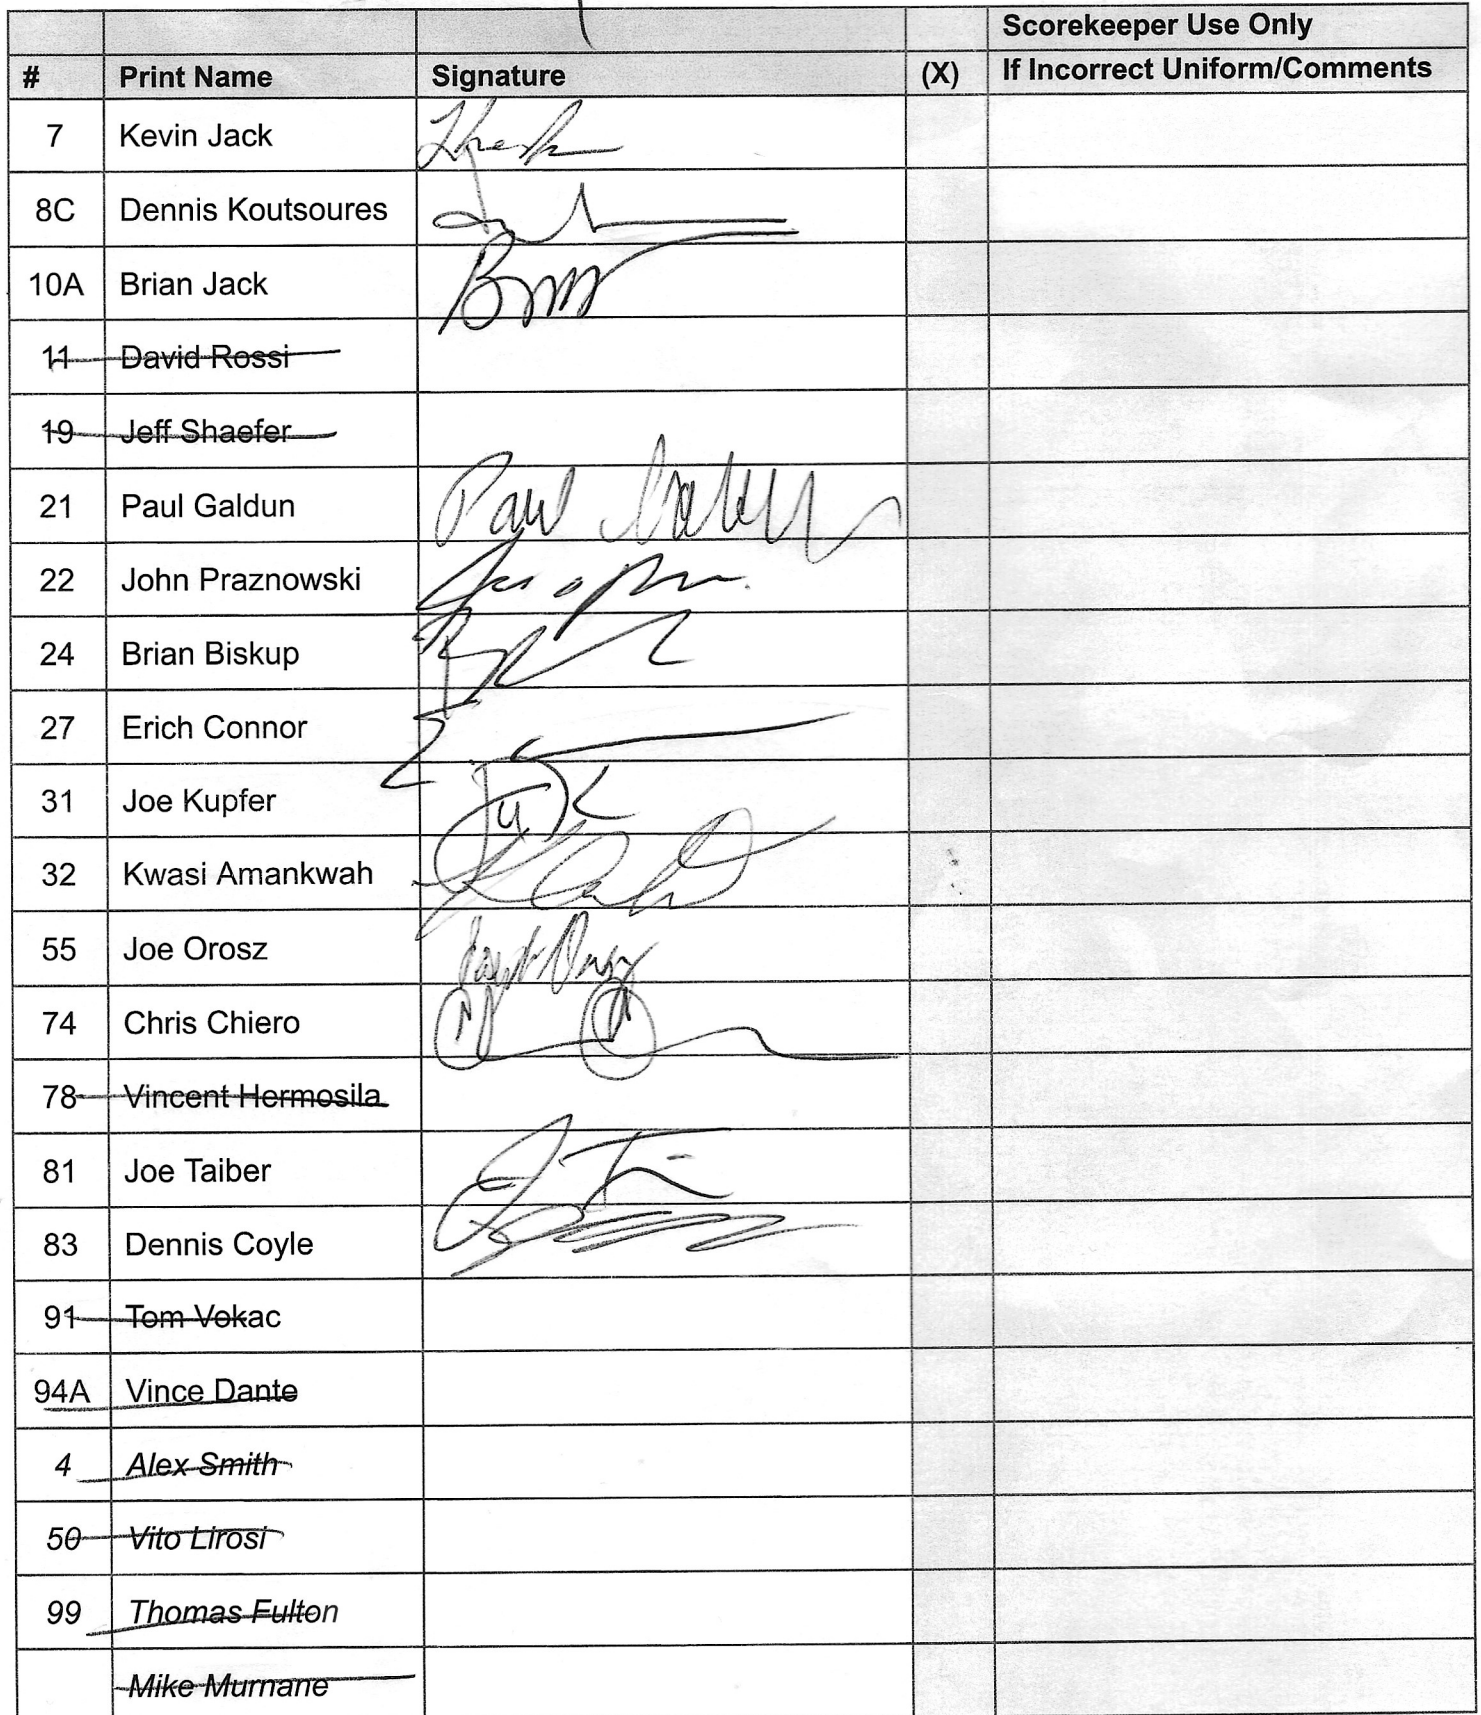 Scorekeeper Use Only
# Print Name Signature (X) If Incorrect Uniform/Comments
7 Kevin Jack
8C Dennis Koutsoures
10A Brian Jack
11 David Rossi
19 Jeff Shaefer
21 Paul Galdun Paul
22 John Praznowski
24 Brian Biskup
27 Erich Connor
31 Joe Kupfer
32 Kwasi Amankwah
55 Joe Orosz
74 Chris Chiero
78 Vincent Hermosila
81 Joe Taiber
83 Dennis Coyle
91 Tom Vokac
94A Vince Dante
4 Alex Smith
50 Vito Lirosi
99 Thomas Fulton
Mike Murnane